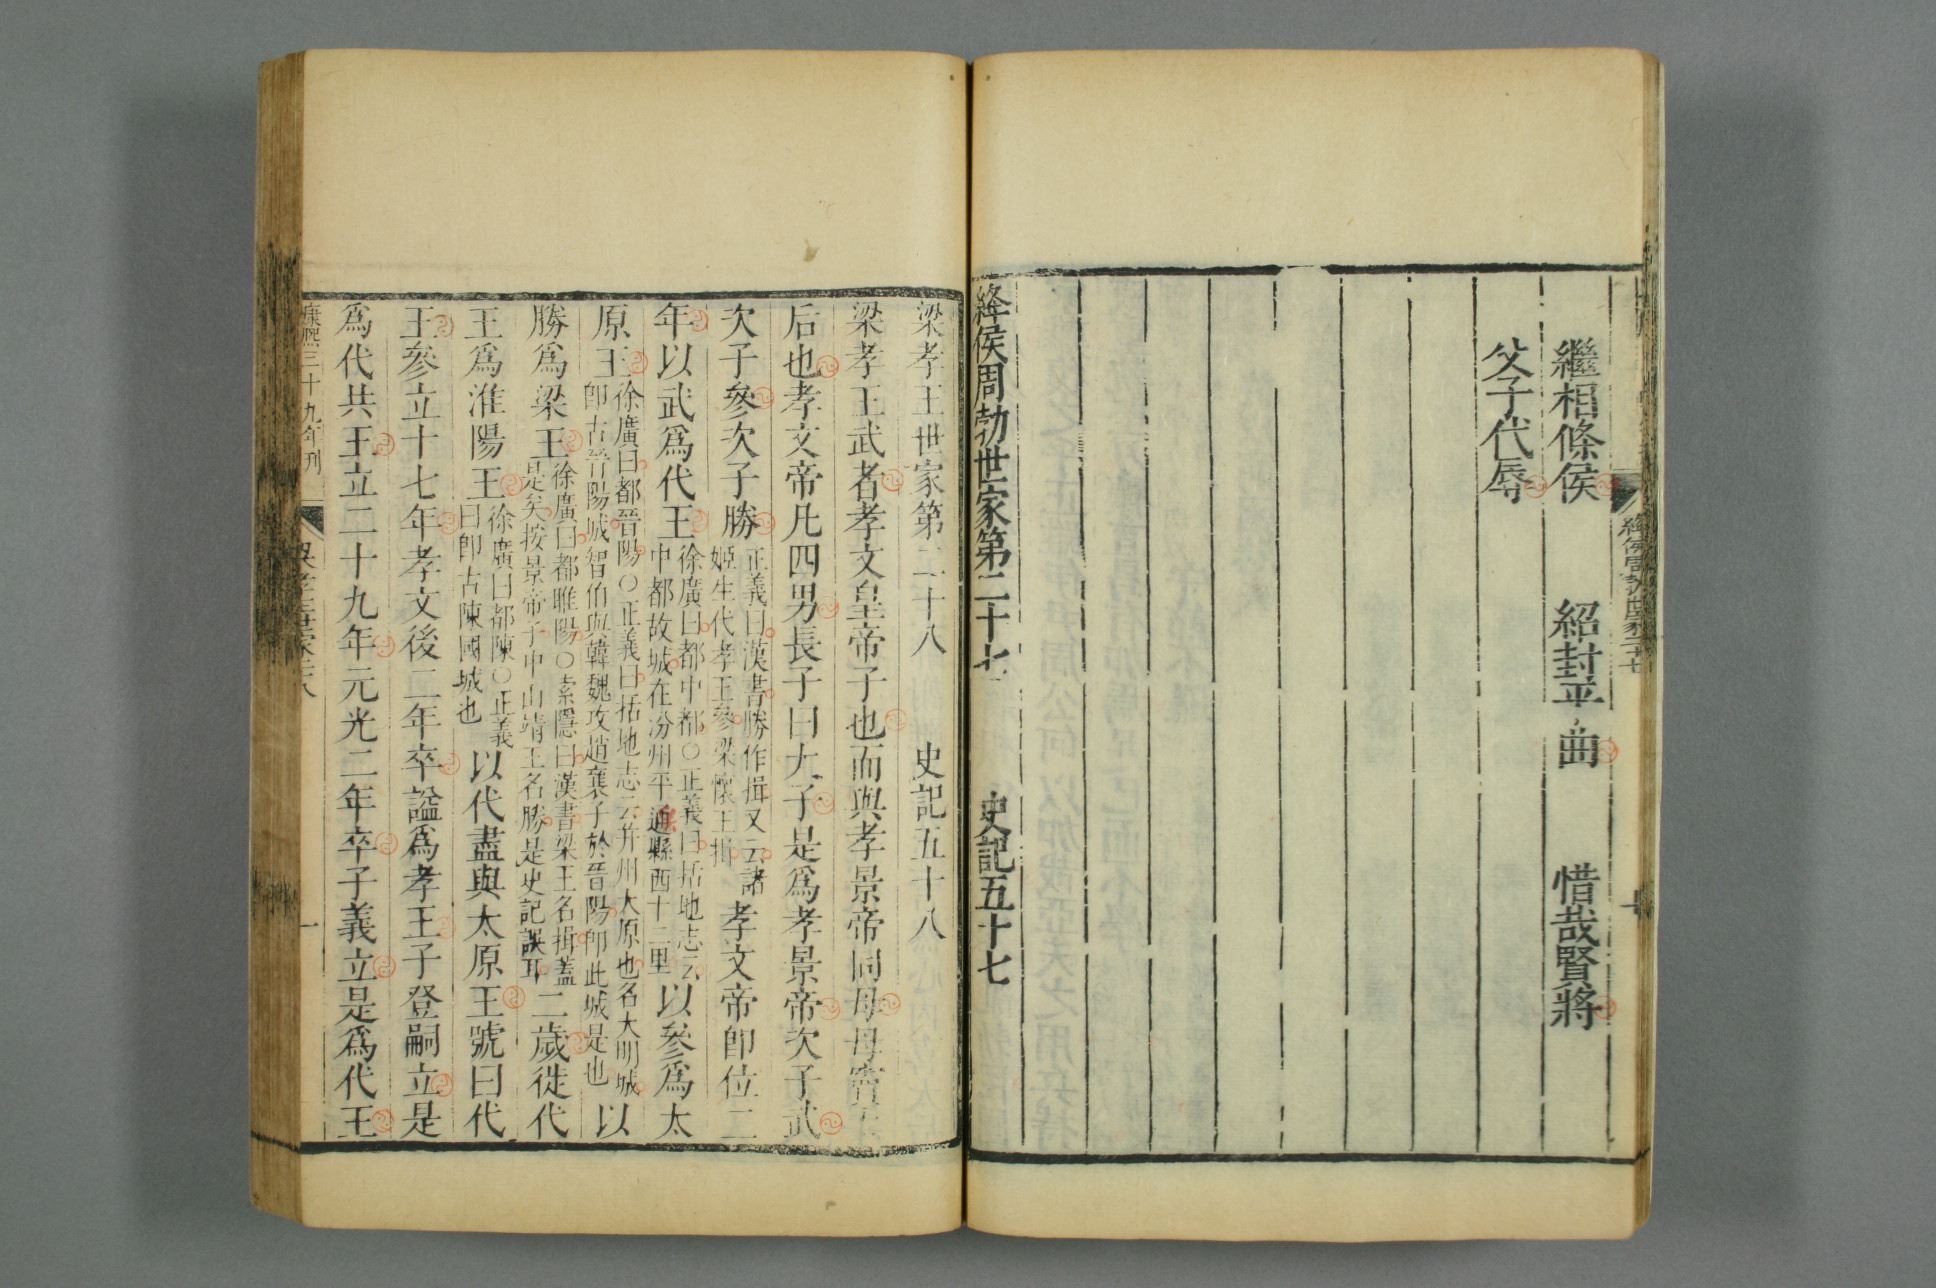 繼相條侯　紹封平曲　惜哉賢將
父子代辱
絳侯周勃世家第二十七　史記五十七
絳侯周勃世家二十七
十
梁孝王世家第二十八　史記五十八
梁孝王武者孝文皇帝子也而與孝景帝同母母竇太
后也孝文帝凡四男長子曰太子是爲孝景帝次子武
次子參次子勝
正義曰漢書勝作揖又云諸
姬生代孝王參梁懷王揖
孝文帝卽位二
年以武爲代王
徐廣曰都中都○正義曰括地志云
中都故城在汾州平遥縣西十二里
以參爲太
原王
徐廣曰都晉陽○正義曰括地志云并州太原也名大明城
卽古晉陽城智伯與韓魏攻趙襄子於晉陽卽此城是也
以
勝爲梁王
徐廣曰都睢陽○索隱曰漢書梁王名揖蓋
是矣按景帝子中山靖王名勝是史記誤耳
二歲徙代
王爲淮陽王
徐廣曰都陳○正義
曰卽古陳國城也
以代盡與太原王號曰代
王參立十七年孝文後二年卒謚爲孝王子登嗣立是
爲代共王立二十九年元光二年卒子義立是爲代王
康熙三十九年刊
梁孝王世家二十八
一